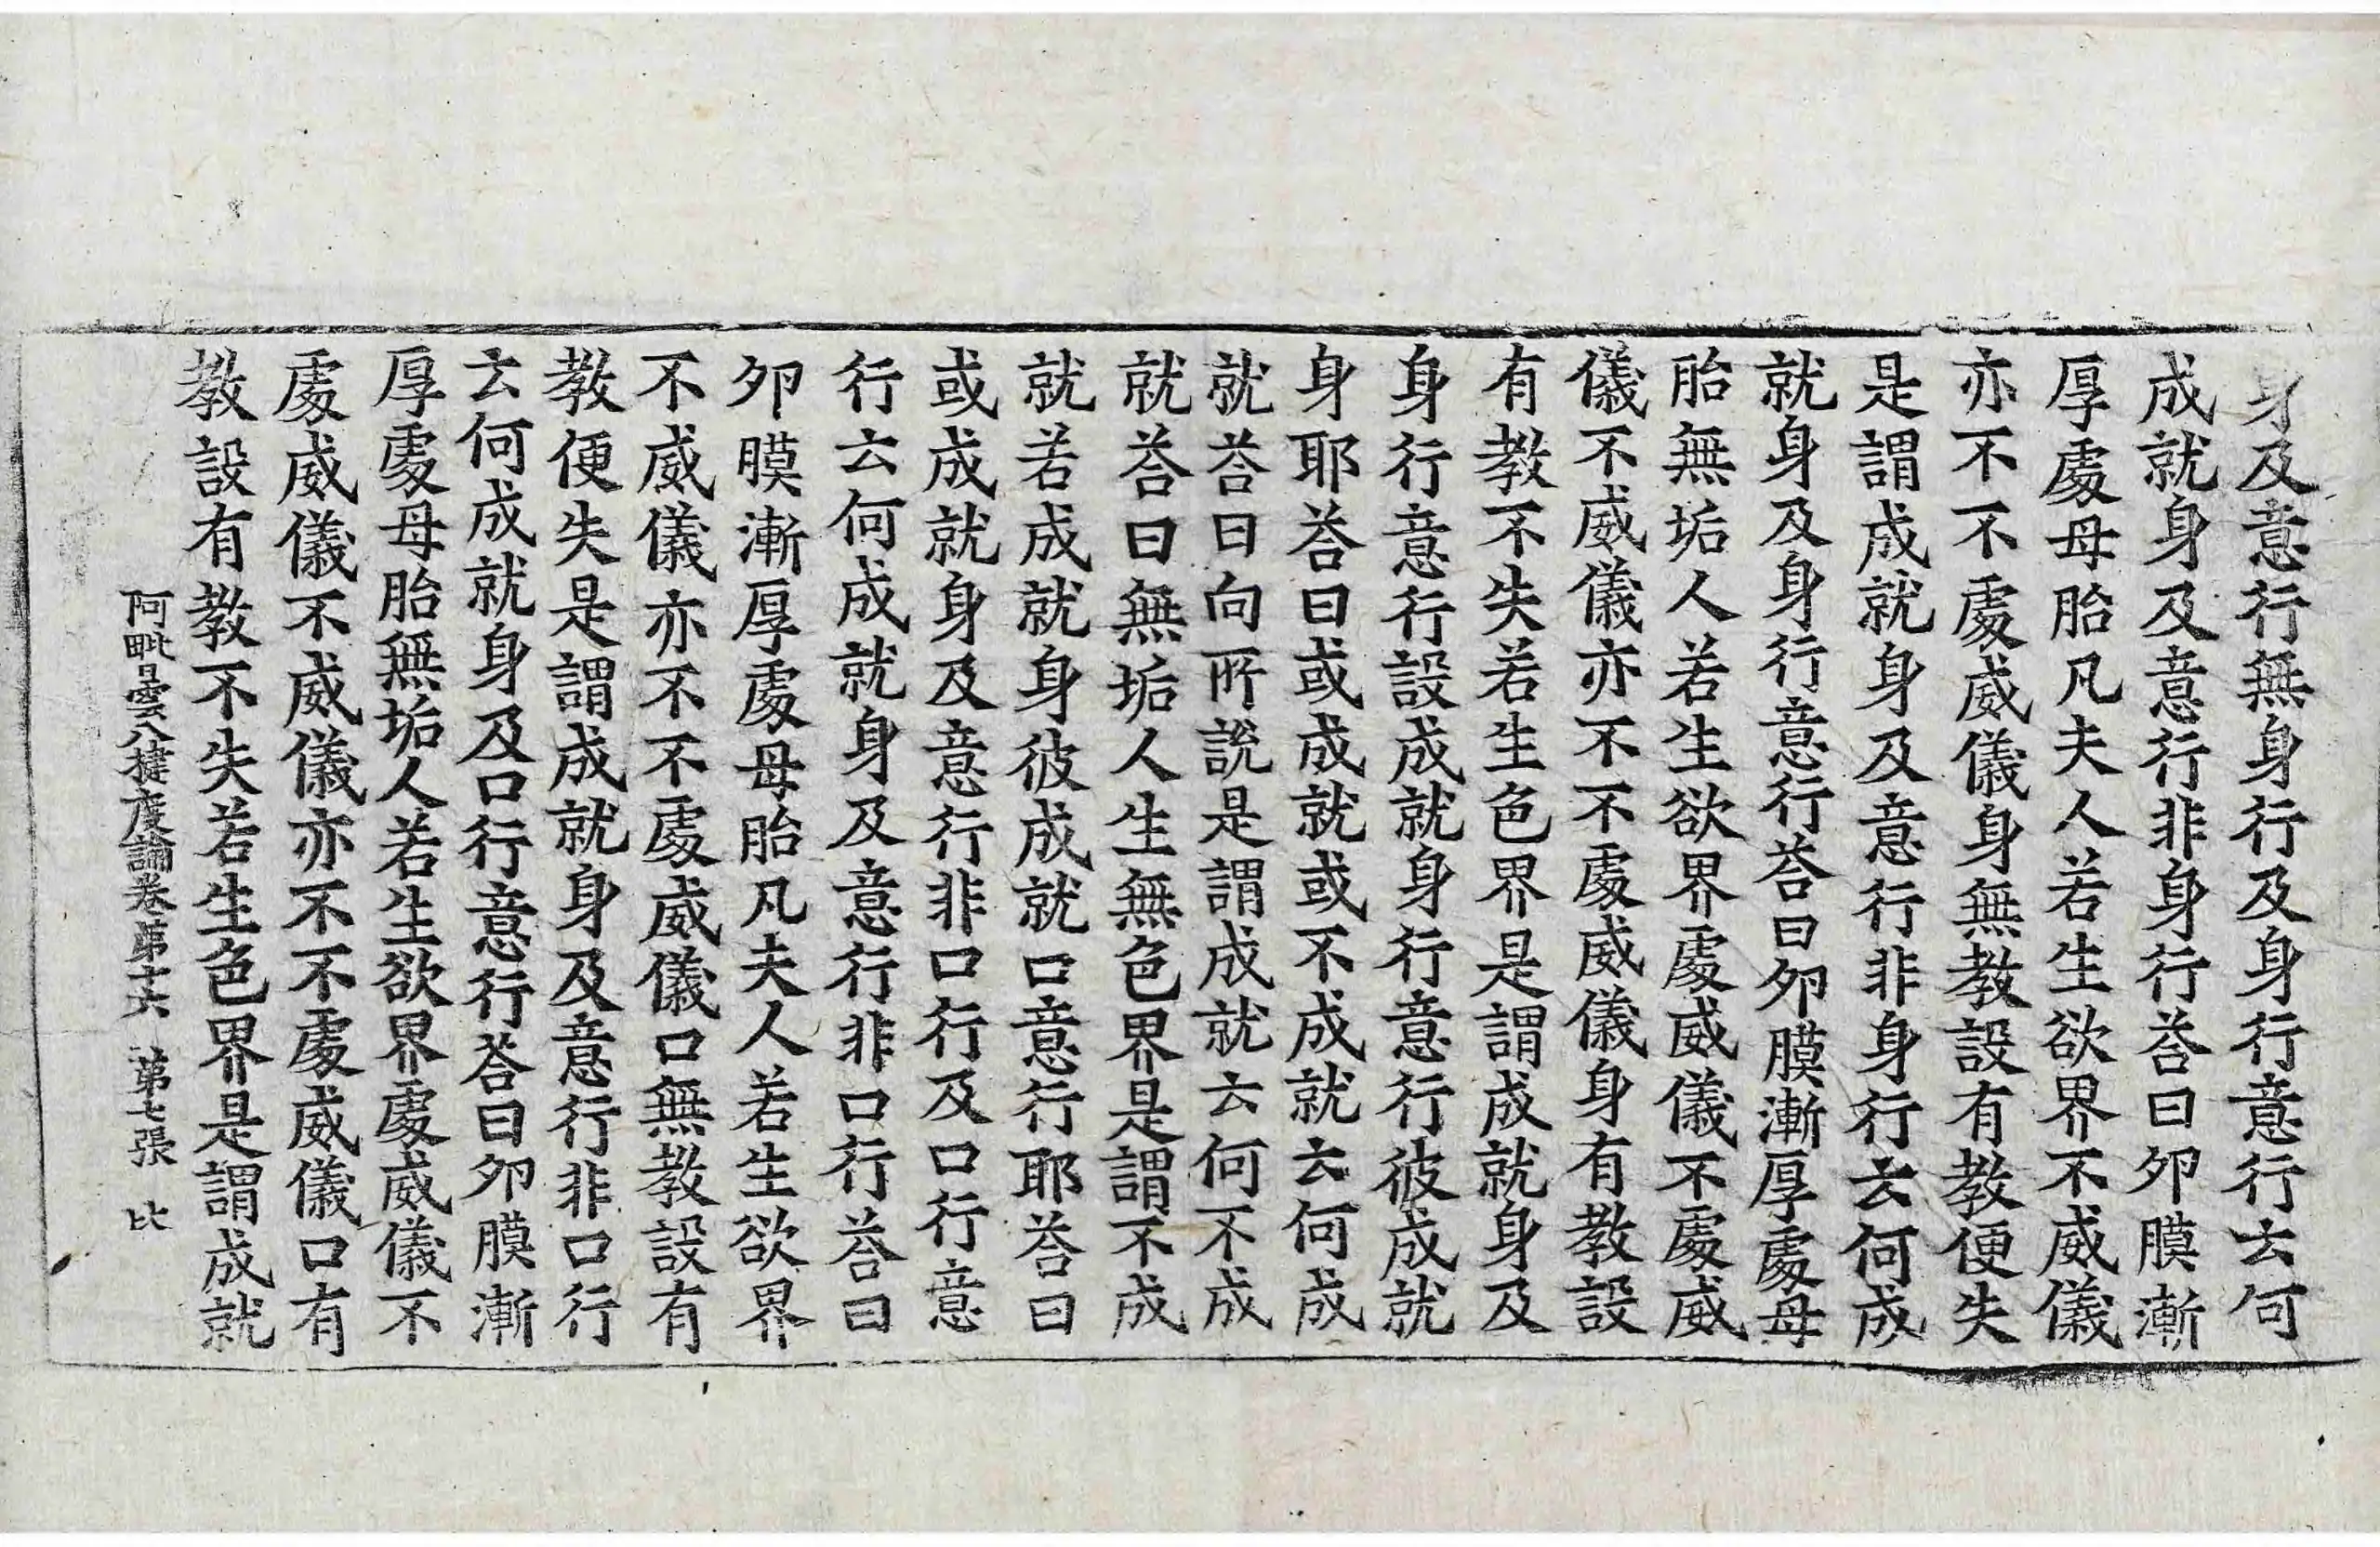 身及意行無身行及身行意行云何
成就身及意行非身行荅曰夘膜漸
厚處母胎凡夫人若生欲界不威儀
亦不不處威儀身無教設有教便失
是謂成就身及意行非身行云何成
就身及身行意行荅曰夘膜漸厚處母
胎無垢人若生欲界處威儀不處威
儀不威儀亦不不處威儀身有教設
有教不失若生色界是謂成就身及
身行意行設成就身行意行彼成就
身耶荅曰或成就或不成就云何成
就荅曰向所說是謂成就云何不成
就荅曰無垢人生無色界是謂不成
就若成就身彼成就口意行耶荅曰
或成就身及意行非口行及口行意
行云何成就身及意行非口行荅曰
夘膜漸厚處母胎凡夫人若生欲界
不威儀亦不不處威儀口無教設有
教便失是謂成就身及意行非口行
云何成就身及口行意行荅曰夘膜漸
厚處母胎無垢人若生欲界處威儀不
處威儀不威儀亦不不處威儀口有
教設有教不失若生色界是謂成就
阿毗曇八揵度論卷第十六 第七張 比